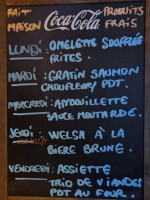 FAIT PRODUITS
MAISON Coca-Cola FRAIS
LUNDI : OMELETTE SOUFFLÉE
FRITES.
MARDI : GRATIN SAUMON
CHOUFLEUR/ PDT.
MERCREDI : ANDOUILLETTE
SAUCE MOUTARDE.
JEUDI : WELSH À LA
BIÈRE BRUNE.
VENDREDI : ASSIETTE
TRIO DE VIANDES
PDT AU FOUR.